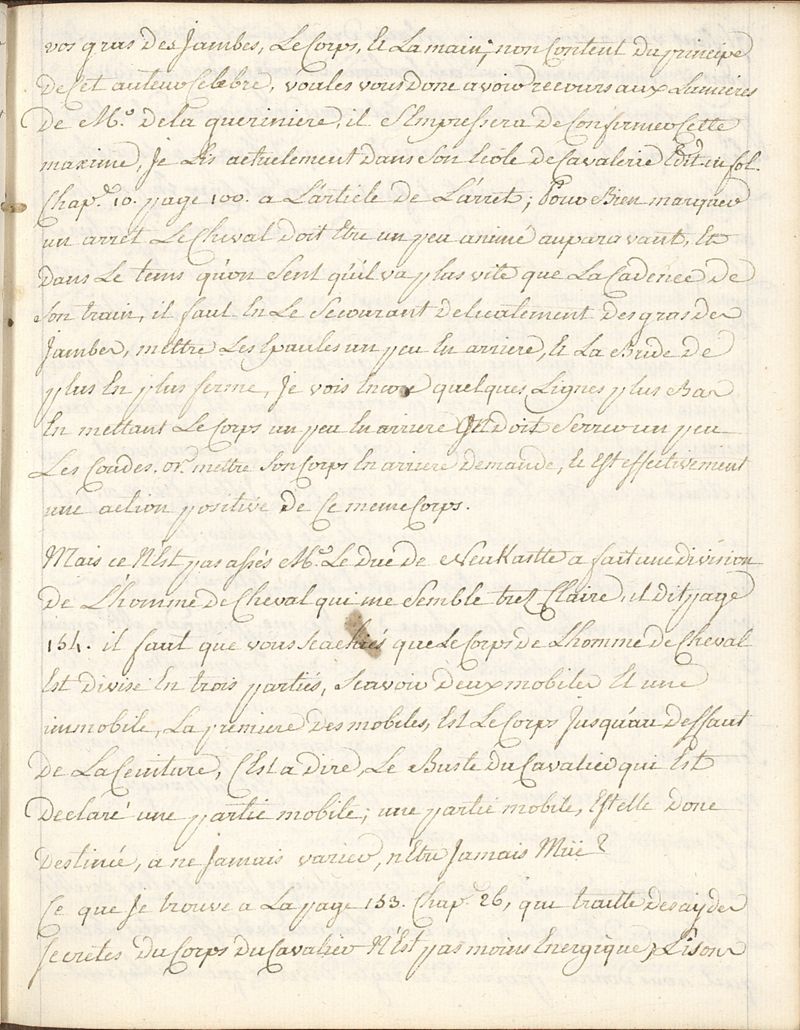 vos gras des Jambes, Le Corps, & La main; non Content du principe
de Cet auteur Celebre, voulés vous donc avoir recours aux Lumières
de Mr. de la queriniere, il s'Empressera de Confirmer Cette
maxime, Je Lis actuelement dans son Ecole de Cavalerie Edit. in fol.
Chap.e 10. page 100. a L'article de L'arret; Pour Bien marquer
un arret Le Cheval doit Etre un peu animé aupara vant, Et
dans Le tems qu'on sent quil va plus vite que La Cadence de
son train, il faut En Le Secourant delicatement des gras des
Jambes, mettre Les Epaules un peu En arriere, & La Bride de
plus En plus ferme, Je vois Encore quelques Lignes plus Bas
En mettant Le Corps un peu En arriere on doit Serrer un peu
Les Coudes. or. mettre Son Corps En arriere demande, & Est effectivement
une action positive de Ce meme Corps.
Mais ce N'Est pas assés Mr. Le duc de NeuKastle a fait une division
de L'homme de Cheval qui me Semble trés Claire, il dit page
154. il faut que vous Scachiés que Le Corps de L'homme de Cheval
Est divisé En trois parties, Scavoir deux mobiles Et une
immobile, La premiere des mobiles, Est Le Corps Jusqu'au deffaut
de La Ceinture, C'Est a dire, Le Buste du Cavalier qui Est
declaré une partie mobile; une partie mobile, Est elle donc
destinée, a ne Jamais varier, n'être Jamais Müe?
Ce que Je trouve a La page 153. Chap.e 26, qui traitte des aydes
secretes du Corps du Cavalier N'Est pas moins Energique; Lisons